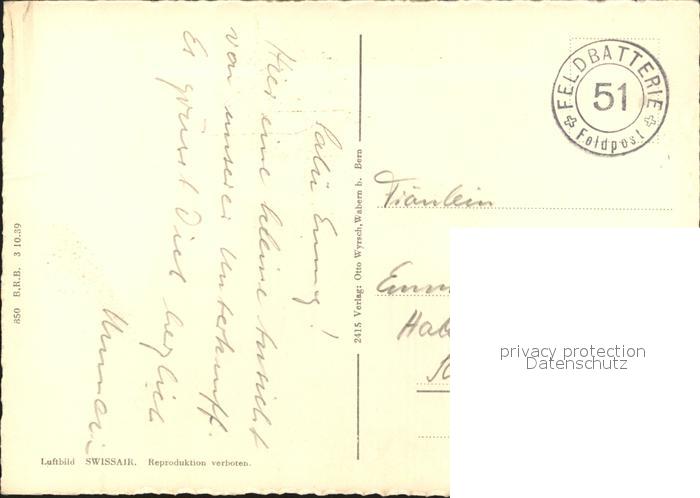 Salü Emmy!
Hier eine kleine Ansicht
von unserer Unterkunft.
Es grüsst Dich herzlich
FELDBATTERIE
51
Feldpost
Fräulein
Emm
Hab
2415 Verlag: Otto Wyrsch, Wabern b. Bern
850 B.R.B. 3 10.39
Luftbild SWISSAIR. Reproduktion verboten.
privacy protection
Datenschutz